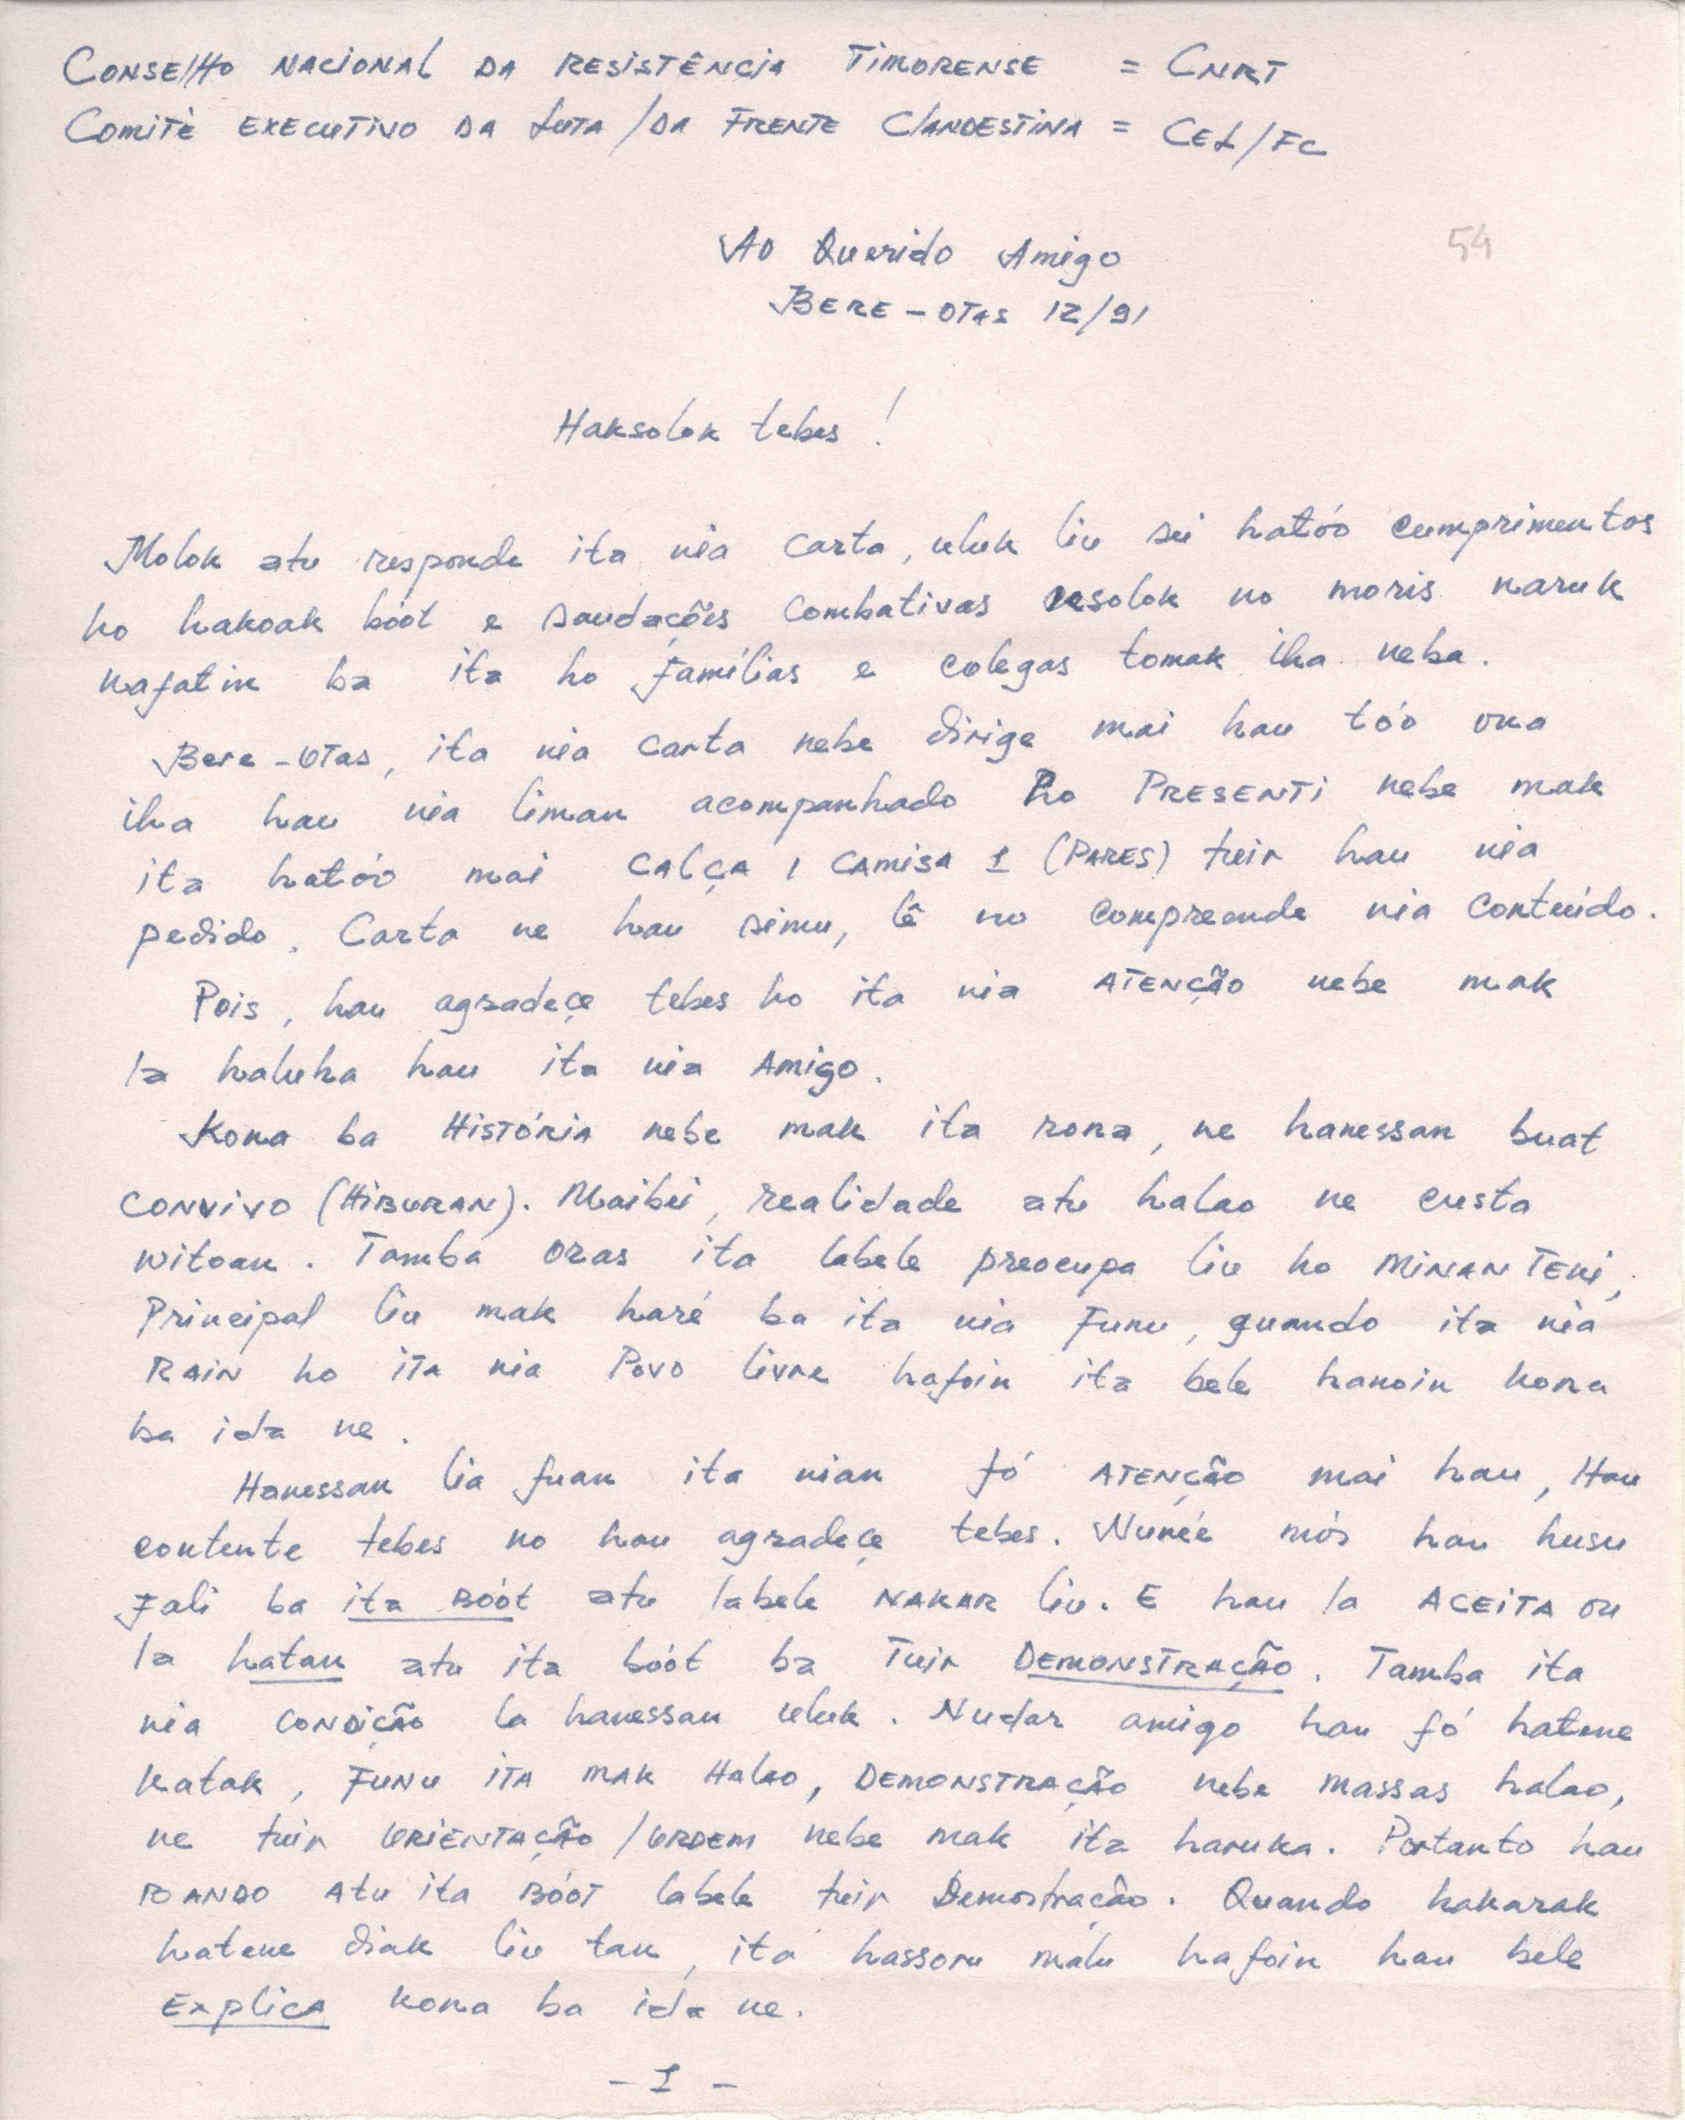 Conselho Nacional da Resistência Timorense = CNRT
Comitè Executivo da Luta/da Frente Clandestina = CEL/FC
54
Ao Querido Amigo
Bere-Otas 12/91
Haksolok tebes!
Molok atu responde ita nia carta, uluk liu sei hatóo cumprimentos
ho hakoak bóot e saudações combativas no moris naruk
nafatin ba ita ho famílias e colegas tomak iha neba.
Bere-Otas, ita nia carta nebe dirige mai hau tóo ona
iha hau nia liman acompanhado ho PRESENTi nebe mak
ita hatóo mai CALÇA 1 CAMISA 1 (PARES) tuir hau nia
pedido. Carta ne hau simu, lê no compreende nia conteúdo.
Pois, hau agradeçe tebes ho ita nia ATENÇÃO nebe mak
la haluha hau ita nia Amigo.
Kona ba HISTÓRIA nebe mak ita rona, ne hanessan buat
CONVIVO (HIBURAN). Maibei, realidade atu halao ne custa
witoan. Tamba oras ita labele preocupa liu ho MINAN TENi,
Principal liu mak haré ba ita nia Funu, quando ita nia
RAIN ho ITA nia Povo livre hafoin ita bele hanoin kona
ba ida ne.
Hanessan lia fuan ita nian fó ATENÇÃO mai hau, Hau
contente tebes no hau agradeçe tebes. Nunée mós hau husu
Fali ba ita BÓOT atu labele NAKAR liu. E hau la ACEITA ou
la hatan atu ita bóot ba Tuir DEMONSTRAÇÃO. Tamba ita
nia CONDIÇÃO la hanessan uluk. Nudar amigo hau fó hatene
katak, FUNU ITA MAK HALAO, DEMONSTRAÇÃO nebe massas halao,
ne tuir ORIENTAÇÃO/ORDEM nebe mak ita haruka. Portanto hau
BANDO Atu ita BÓOT labele tuir Demostração. Quando hakarak
hatene diak liu tan, ita hassoru malu hafoin hau bele
Explica kona ba ida ne.
- 1 -